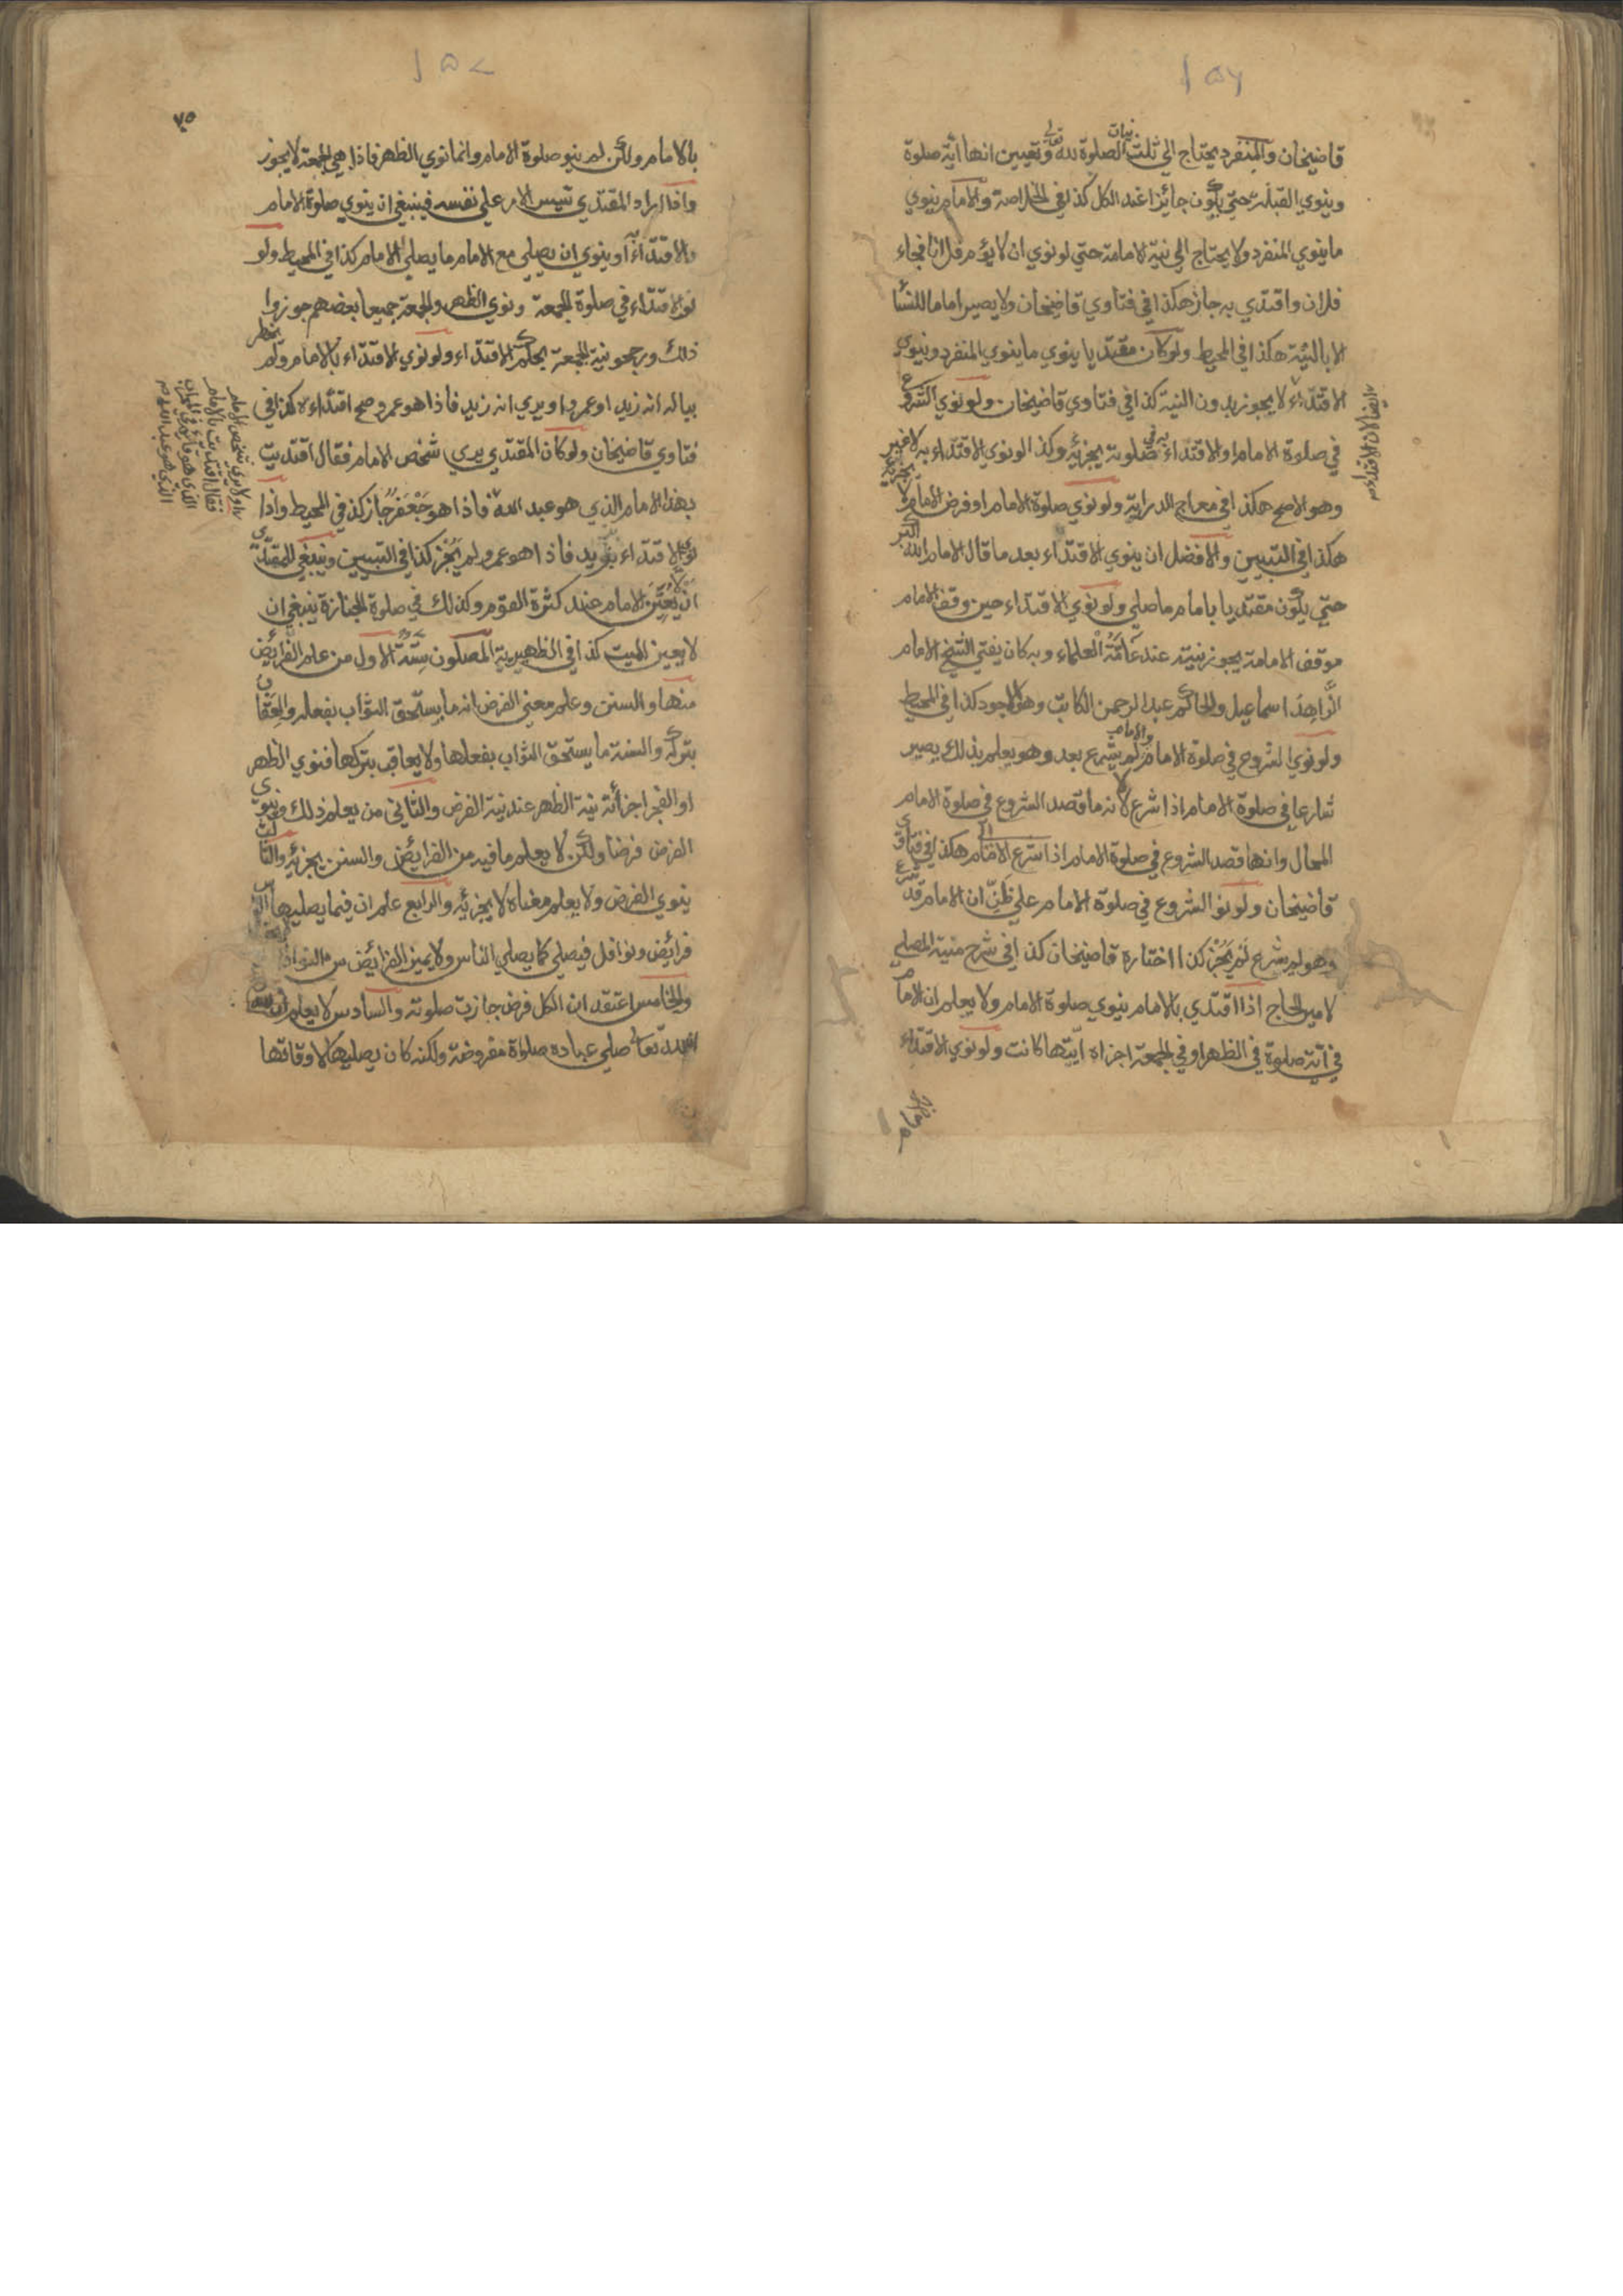 ١٥٦
قاضيخان والمنفرد يحتاج الي ثلث نيات الصلوة لله تعالي وتعيين انها اية صلوة
وينوي القبلة حتي يكون جائزا عند الكل كذا في الخلاصة والامام ينوي
ما ينوي المنفرد ولا يحتاج الي نية الامامة حتي لو نوي ان لا يؤم فلانا فجاء
فلان واقتدي به جاز هكذا في فتاوي قاضيخان ولا يصير اماما للنسا
الا بالنية هكذا في المحيط ولو كان مقتديا ينوي ما ينوي المنفرد وينوي
الاقتداء لا يجوز بدون النية كذا في فتاوي قاضيخان ولو نوي الشروع
في صلوة الامام او الاقتداء به في صلوته يجزئه وكذا لو نوي الاقتداء به لا غير
وهو الاصح هكذا في معراج الدراية ولو نوي صلوة الامام او فرض الامام لا
هكذا في التبيين والافضل ان ينوي الاقتداء بعد ما قال الامام الله اكبر
حتي يكون مقتديا بامام ما صلي ولو نوي الاقتداء حين وقف الامام
موقف الامامة يجوز نيته عند عامة العلماء وبه كان يفتي الشيخ الامام
الزاهد اسماعيل والحاكم عبد الرحمن الكاتب وهو الاجود كذا في المحيط
ولو نوي الشروع في صلوة الامام والامام لم يشرع بعد وهو يعلم بذلك يصير
شارعا في صلوة الامام اذا شرع لانه ما قصد الشروع في صلوة الامام
المحال وانما قصد الشروع في صلوة الامام اذا شرع الامام هكذا في فتاوي
قاضيخان ولو نوا الشروع في صلوة الامام علي ظن ان الامام قد شرع
وهو لم يشرع لم يجز كذا اختاره قاضيخان كذا في شرح منية المصلي
لامير الحاج اذا اقتدي بالامام ينوي صلوة الامام ولا يعلم ان الامام
في اية صلوة في الظهر او في الجمعة اجزاه ايتها كانت ولو نوي الاقتداء
١٥٧
٧٥
بالامام ولكن لم ينو صلوة الامام وانما نوي الظهر فاذا هي الجمعة لا يجوز
واذا اراد المقتدي تيسير الامر علي نفسه فينبغي ان ينوي صلوة الامام
والاقتداء او ينوي ان يصلي مع الامام ما يصلي الامام كذا في المحيط ولو
نوي الاقتداء في صلوة الجمعة ونوي الظهر والجمعة جميعا بعضهم جوزوا
ذلك ورجحوا نية الجمعة بحكم الاقتداء ولو نوي الاقتداء بالامام ولم يخطر
بباله انه زيد او عمرو او يري انه زيد فاذا هو عمرو صح اقتداءه هكذا في
فتاوي قاضيخان ولو كان المقتدي يري شخص الامام فقال اقتديت
بهذا الامام الذي هو عبد الله فاذا هو جعفر جاز كذا في المحيط واذا
نوي الاقتداء بزيد فاذا هو عمرو لم يجز كذا في التبيين وينبغي للمقتدي
ان لا يعين الامام عند كثرة القوم وكذلك في صلوة الجنازة ينبغي ان
لا يعين الميت كذا في الظهيرية المصلون ستة الاول من علم الفرايض
منها والسنن وعلم معني الفرض انه ما يستحق الثواب بفعله والعقاب
بتركه والسنة ما يستحق الثواب بفعلها ولا يعاقب بتركها فنوي الظهر
او الفجر اجزأته نية الظهر عند نية الفرض والثاني من يعلم ذلك وينوي
الفرض فرضا ولكن لا يعلم ما فيه من الفرايض والسنن يجزئه والثالث
ينوي الفرض ولا يعلم معناه لا يجزئه والرابع علم ان فيما يصليها الناس
فرائض ونوافل فيصلي كما يصلي الناس ولا يميز الفرائض من النوافل
والخامس اعتقد ان الكل فرض جازت صلوته والسادس لا يعلم ان
لله تعالي علي عباده صلواة مفروضة ولكنه كان يصليها لاوقاتها